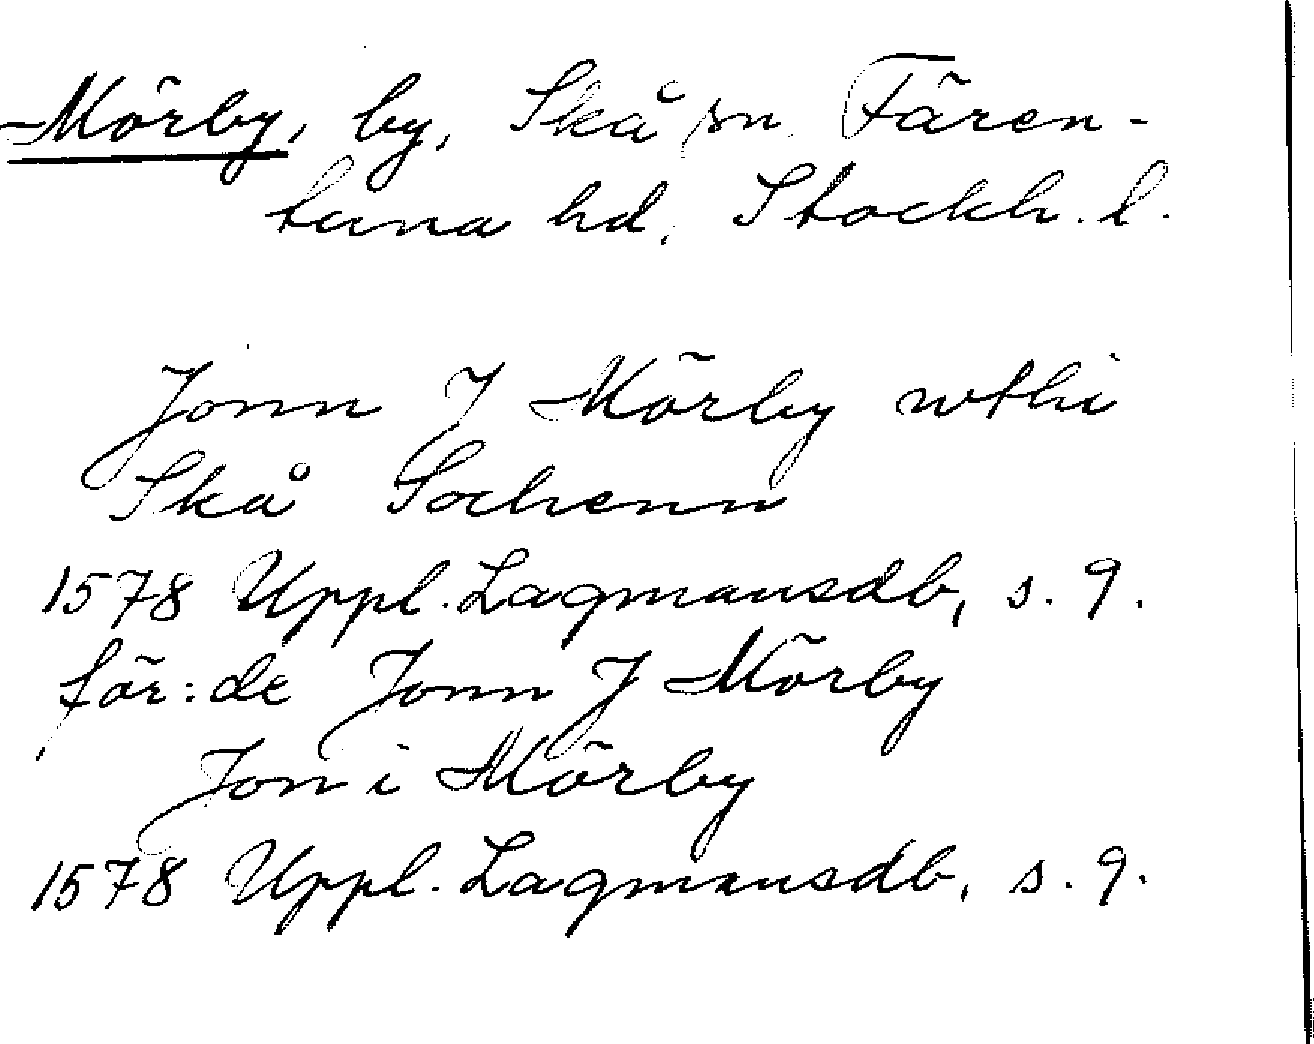 Mörby, by, Skå sn. Fären-
tuna hd. Stockh. l.
Jonn J Mörby wthi
Skå Sochenn
1578 Uppl. Lagmansdb, s. 9.
för:de Jonn J Mörby
Jon i Mörby
1578 Uppl. Lagmansdb, s. 9.